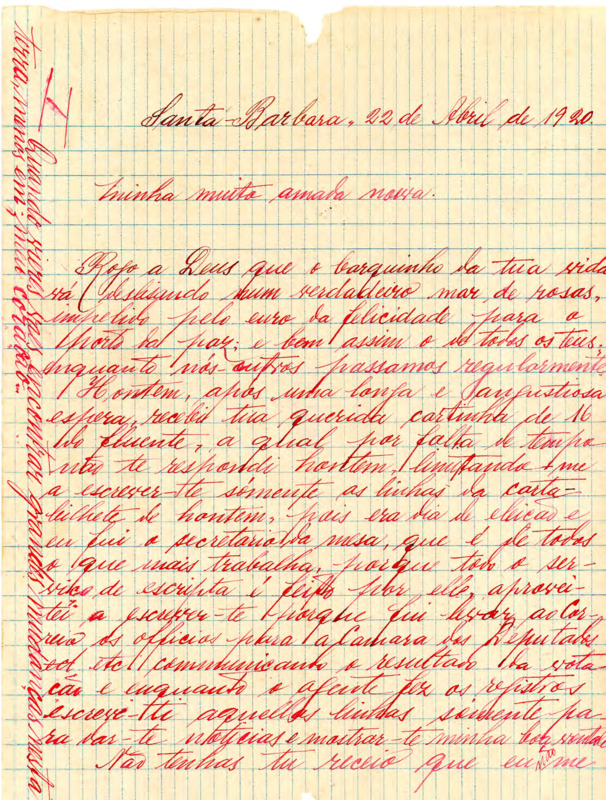 Santa Barbara, 22 de Abril de 1920.
Minha muito amada noiva.
Rogo a Deus que o barquinho da tua vida
vá deslisando num verdadeiro mar de rosas,
impelido pelo euro da felicidade para o
porto da paz; e bem assim o de todos os teus,
inquanto nós outros passamos regularmente.
Hontem, após uma longa e angustiosa
espera, recebi tua querida cartinha de 16
do fluente, a qual por falta de tempo
não te respondi hontem, limitando-me
a escrever-te sómente as linhas da carta-
bilhete de hontem, pois era dia de eleição e
eu fui o secretario da mesa, que é de todos
o que mais trabalha, porque todo o ser-
viço de escripta é feito por elle, aprovei-
tei a escrever-te porque fui levar ao Cor-
reio os officios para a Camara dos Deputados
etc. communicando o resultado da vota-
ção e enquanto o agente fez os registros
escrevi-tti aquellas linhas somente pa-
ra dar-te noticias e mostrar-te minha boa vontade
Não tenhas tu receio que eu não me
I
Quando vieres vais encontrar grandes mudanças nesta
terra, menos em; meu coração.